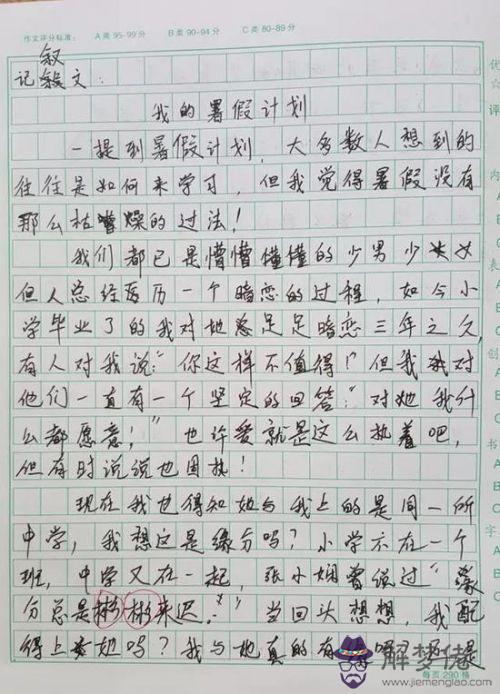 作文评分标准： A类 95-99分 B类 90-94分 C类 80-89分
叙
记文：
我的暑假计划
一提到暑假计划，大多数人想到的
往往是如何来学习，但我觉得暑假没有
那么枯燥的过法！
我们都已是懵懵懂懂的少男少女
但人总经历一个暗恋的过程，如今小
学毕业了的我对她足足暗恋三年之久，
有人对我说：“你这样不值得！”但我对
他们一直有一个坚定的回答：“对她我什
么都愿意！”也许爱就是这么执着吧，
但有时说说也困扰！
现在我也得知她与我上的是同一所
中学，我想这是缘分吗？小学不在一个
班，中学又在一起，张小娴曾说过“缘
分总是彬彬来迟。”当回头想想，我配
得上她吗？我与她真的有
缘
优
☆
评
内
表
创
书
A
B
C
每页290格
解梦佬
www.jiemenglao.com